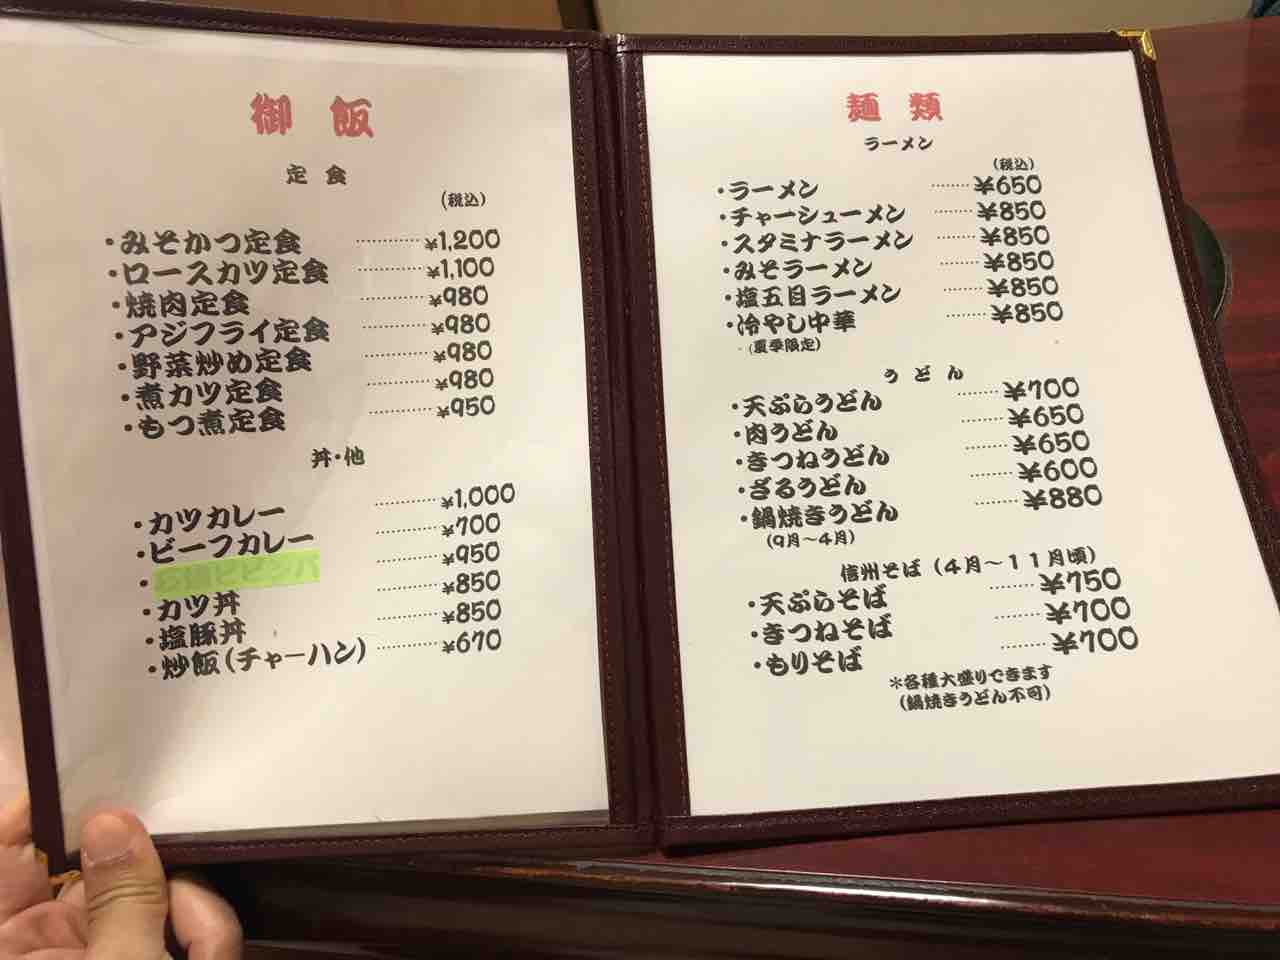 御飯
定食
(税込)
・みそかつ定食 ············ ¥1,200
・ロースカツ定食 ············ ¥1,100
・焼肉定食 ············ ¥980
・アジフライ定食 ············ ¥980
・野菜炒め定食 ············ ¥980
・煮カツ定食 ············ ¥980
・もつ煮定食 ············ ¥950
丼・他
・カツカレー ············ ¥1,000
・ビーフカレー ············ ¥700
・ ············ ¥950
・カツ丼 ············ ¥850
・塩豚丼 ············ ¥850
・炒飯(チャーハン) ············ ¥670
麺類
ラーメン
(税込)
・ラーメン ········ ¥650
・チャーシューメン ········ ¥850
・スタミナラーメン ········ ¥850
・みそラーメン ········ ¥850
・塩五目ラーメン ········ ¥850
・冷やし中華 ········ ¥850
(夏季限定)
うどん
・天ぷらうどん ········ ¥700
・肉うどん ········ ¥650
・きつねうどん ········ ¥650
・ざるうどん ········ ¥600
・鍋焼きうどん ········ ¥880
(9月～4月)
信州そば(4月～11月頃)
・天ぷらそば ········ ¥750
・きつねそば ········ ¥700
・もりそば ········ ¥700
*各種大盛りできます
(鍋焼きうどん不可)